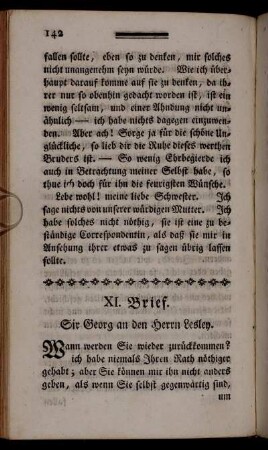 142
fallen sollte, eben so zu denken, mir solches
nicht unangenehm seyn würde. Wie ich über-
haupt darauf komme auf sie zu denken, da ih-
rer nur so obenhin gedacht worden ist, ist ein
wenig seltsam, und einer Ahndung nicht un-
ähnlich — ich habe nichts dagegen einzuwen-
den. Aber ach! Sorge ja für die schöne Un-
glückliche, so lieb dir die Ruhe dieses werthen
Bruders ist. — So wenig Ehrbegierde ich
auch in Betrachtung meiner Selbst habe, so
thue ich doch für ihn die feurigsten Wünsche.
Lebe wohl! meine liebe Schwester. Ich
sage nichts von unsrer würdigen Mutter. Ich
habe solches nicht nöthig, sie ist eine zu be-
ständige Correspondentin, als daß sie mir in
Ansehung ihrer etwas zu sagen übrig lassen
sollte.
XI. Brief.
Sir Georg an den Herrn Lesley.
Wann werden Sie wieder zurückkommen?
ich habe niemals Ihren Rath nöthiger
gehabt; aber Sie können mir ihn nicht anders
geben, als wenn Sie selbst gegenwärtig sind,
um